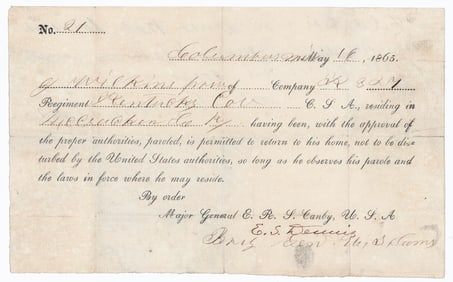 No. 21
Columbus Miss May 16, 1865.
G Wilkins priv of Company K 3 & 7
Regiment Kentucky Cav C. S. A., residing in
McCracken Co Ky having been, with the approval of
the proper authorities, paroled, is permitted to return to his home, not to be dis-
turbed by the United States authorities, so long as he observes his parole and
the laws in force where he may reside.
By order
Major General E. R. S. Canby, U. S. A
E. S. Dennis
Brig Gen